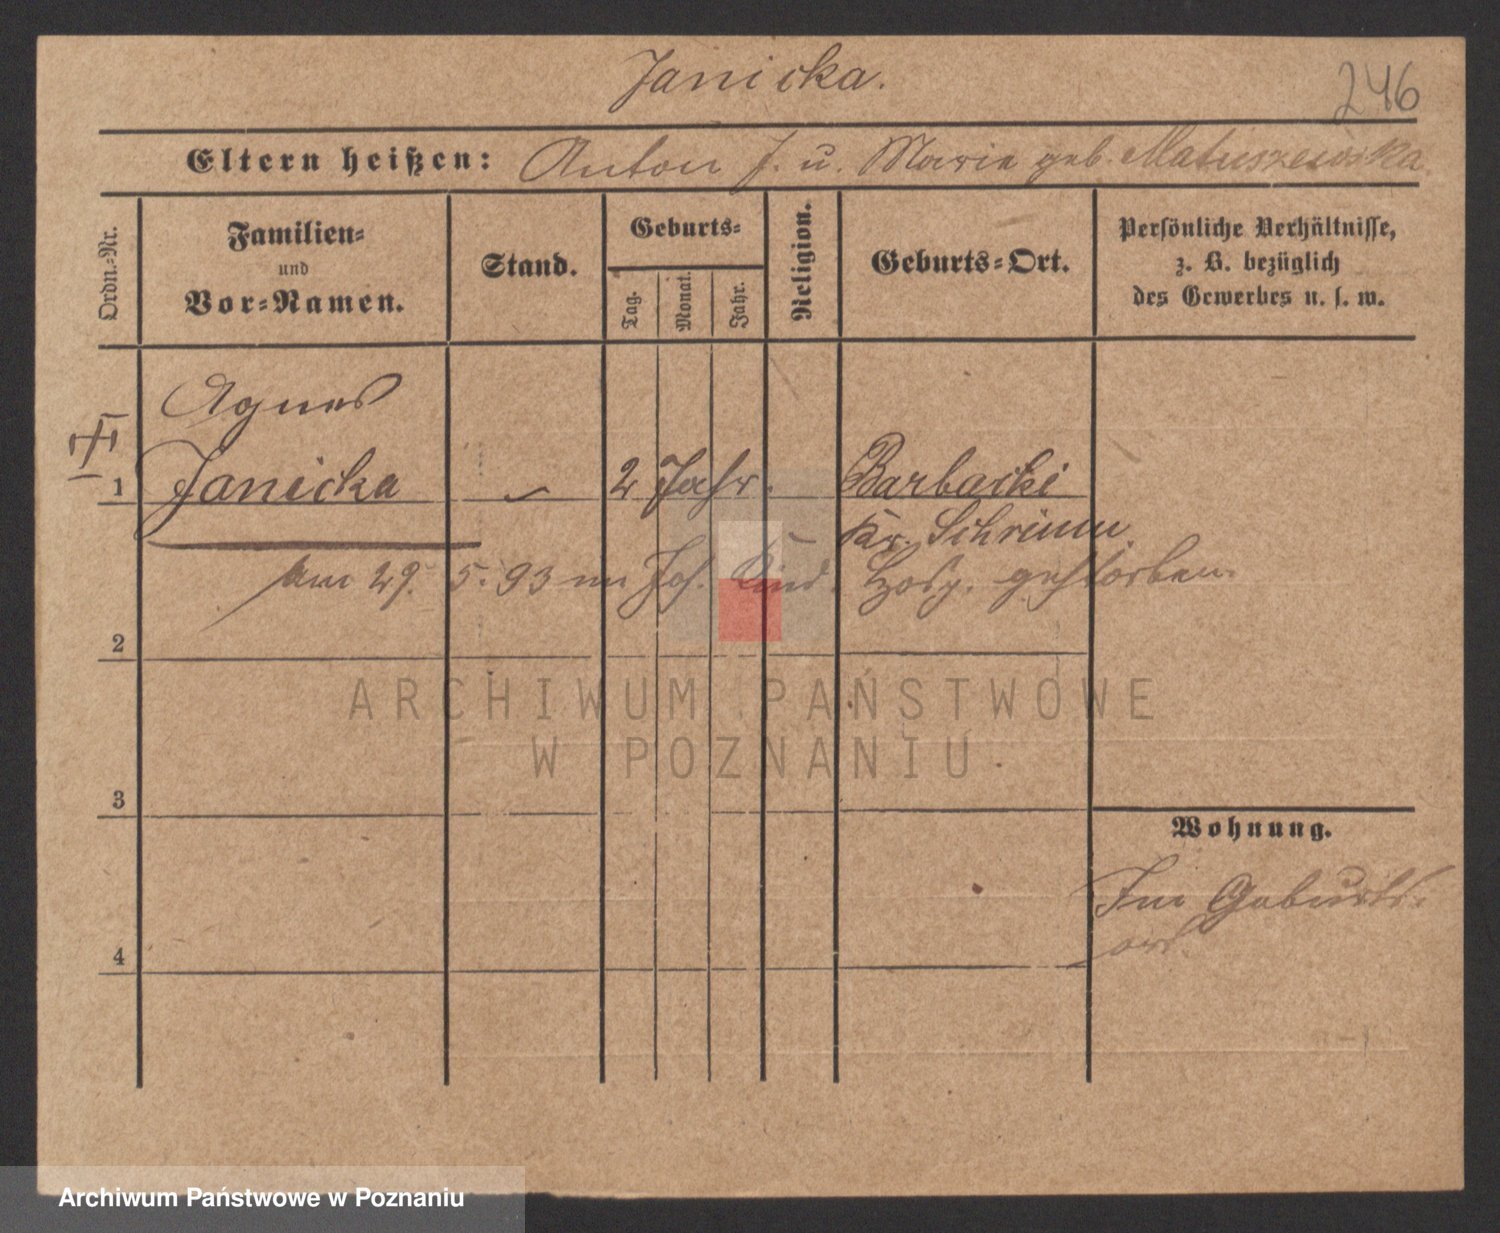 Janicka.
246
Eltern heißen: Anton J. u. Marie geb. Matuszewska
Ordn.=Nr.
Familien=
und
Vor=Namen.
Stand.
Geburts=
Tag.
Monat.
Jahr.
Religion.
Geburts=Ort.
Persönliche Verhältnisse,
z. B. bezüglich
des Gewerbes u. s. w.
Agnes
1 Janicka 2 Jahr. Barbacki
Kr. Schrimm.
am 29. 5. 93 im Jos. Kind. Hosp. gestorben.
2
ARCHIWUM PAŃSTWOWE
W POZNANIU
3
Wohnung.
Im Geburts=
ort
4
Archiwum Państwowe w Poznaniu